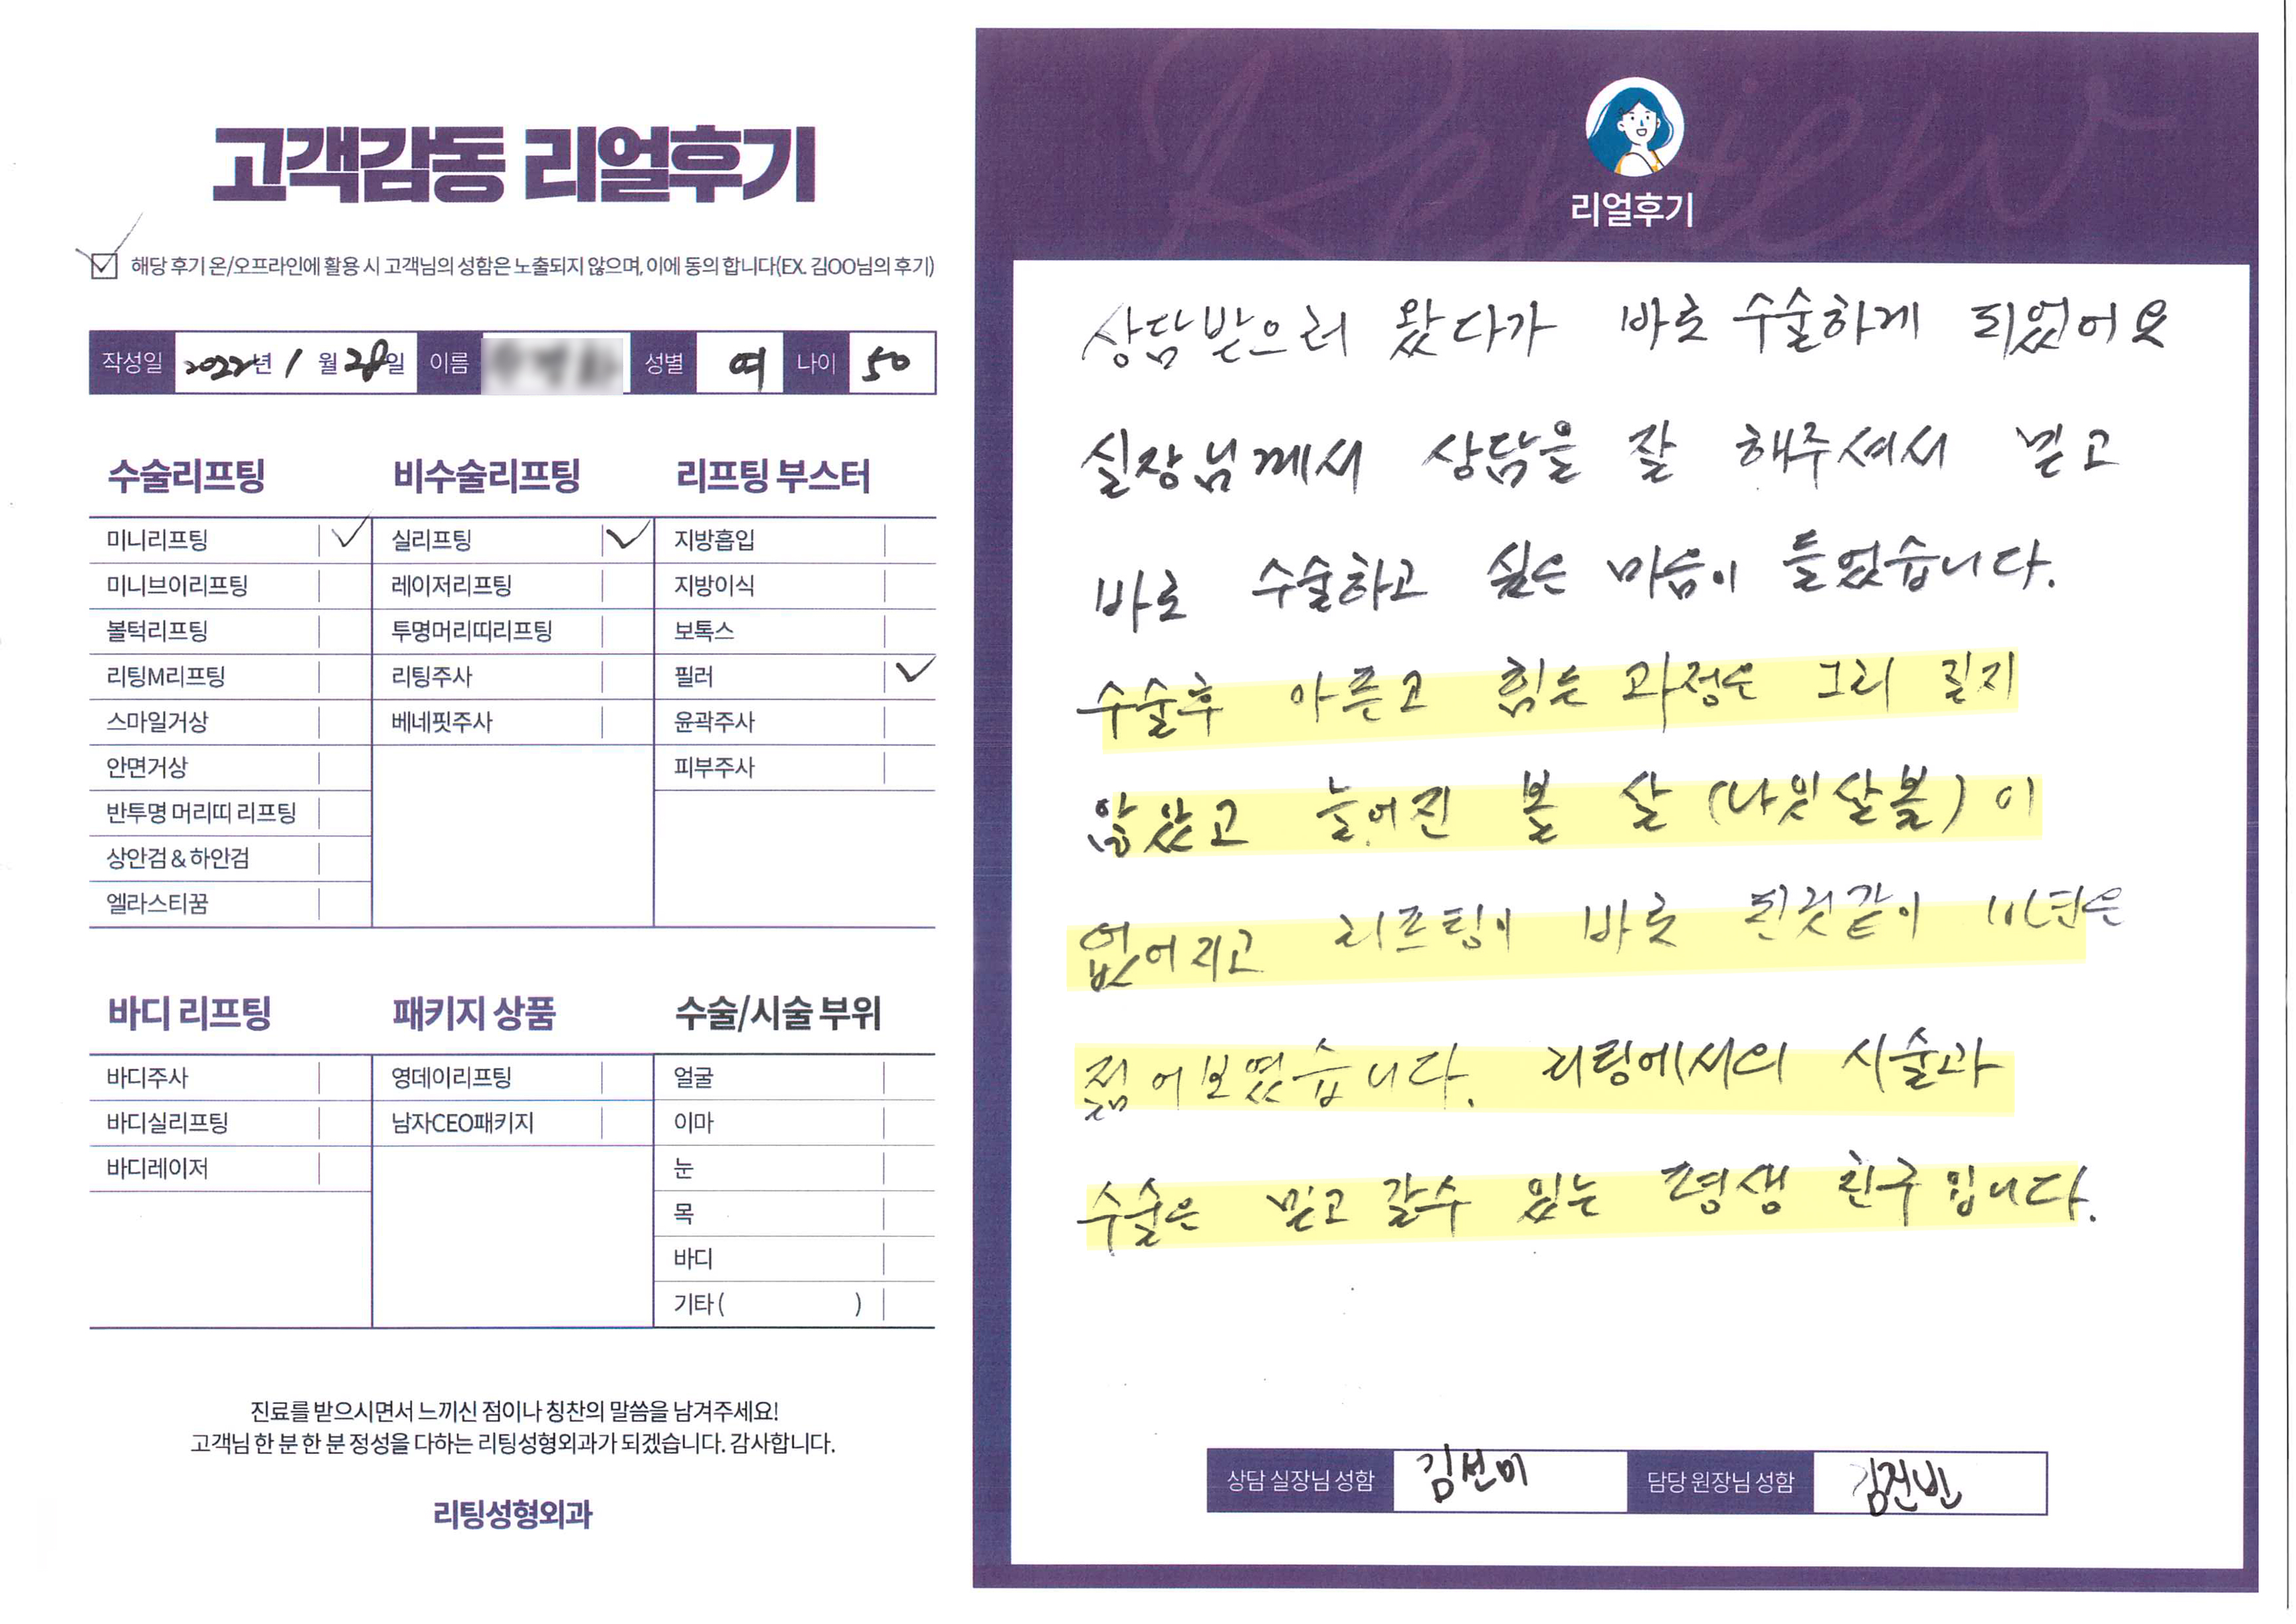 고객감동 리얼후기
해당 후기 온/오프라인에 활용 시 고객님의 성함은 노출되지 않으며, 이에 동의 합니다(EX. 김OO님의 후기)
작성일 2022년 1월 28일 이름 성별 여 나이 50
수술리프팅
미니리프팅
미니브이리프팅
볼턱리프팅
리팅M리프팅
스마일거상
안면거상
반투명 머리띠 리프팅
상안검 & 하안검
엘라스티꿈
비수술리프팅
실리프팅
레이저리프팅
투명머리띠리프팅
리팅주사
베네핏주사
리프팅 부스터
지방흡입
지방이식
보톡스
필러
윤곽주사
피부주사
바디 리프팅
바디주사
바디실리프팅
바디레이저
패키지 상품
영데이리프팅
남자CEO패키지
수술/시술 부위
얼굴
이마
눈
목
바디
기타 ( )
진료를 받으시면서 느끼신 점이나 칭찬의 말씀을 남겨주세요!
고객님 한 분 한 분 정성을 다하는 리팅성형외과가 되겠습니다. 감사합니다.
리팅성형외과
Review
리얼후기
상담받으러 왔다가 바로 수술하게 되었어요
실장님께서 상담을 잘 해주셔서 믿고
바로 수술하고 싶은 마음이 들었습니다.
수술후 아픈고 힘든 과정은 그리 길지
않았고 늘어진 볼 살 (나잇살볼) 이
없어지고 리프팅이 바로 된것같이 10년은
젊어보였습니다. 리팅에서의 시술과
수술은 믿고 갈수 있는 평생 친구입니다.
상담 실장님 성함 김선미 담당 원장님 성함 김건빈